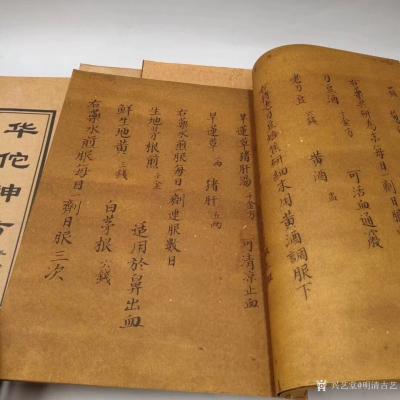 刀豆酒 千金方 可活血通竅
老刀豆 錢 黃酒
焙焦研細末用黃酒調服下
旱蓮草豬肝湯 千金方 可清涼止血
旱蓮草 兩 豬肝 五兩
右藥水煎服每日一劑連服數日
生地芽根煎 千金 適用於鼻出血
鮮生地黃 三錢 白茅根 六錢
右藥水煎服每日一劑日服三次
华佗神方
兴艺堂@明清古艺